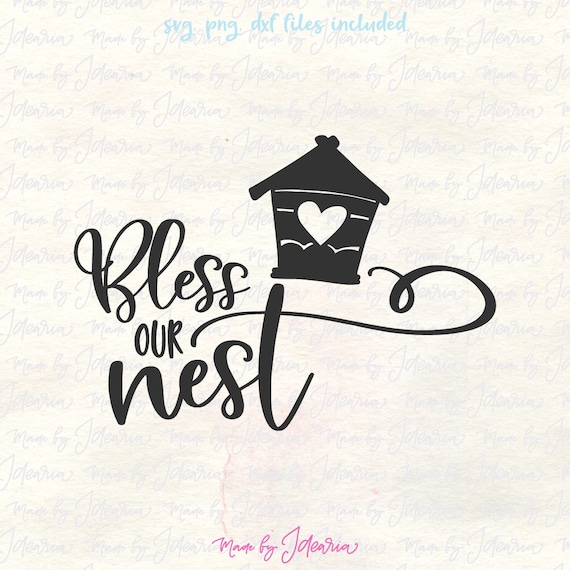 svg, png, dxf files included
Bless
OUR
nest
Made by Jdearia